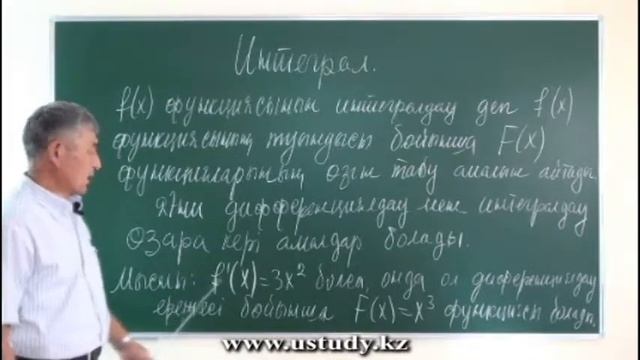 Интеграл.
f(x) функциясының интегралдау деп f(x)
функциясының туындысы бойынша F(x)
функцияларының өзін табу амалын айтады
яғни дифференциялдау мен интегралдау
өзара кері амалдар болады.
Мысалы: f'(x)=3x² болса, онда ол диференциялдау
ережесі бойынша F(x)=x³ функциясы болады.
www.ustudy.kz